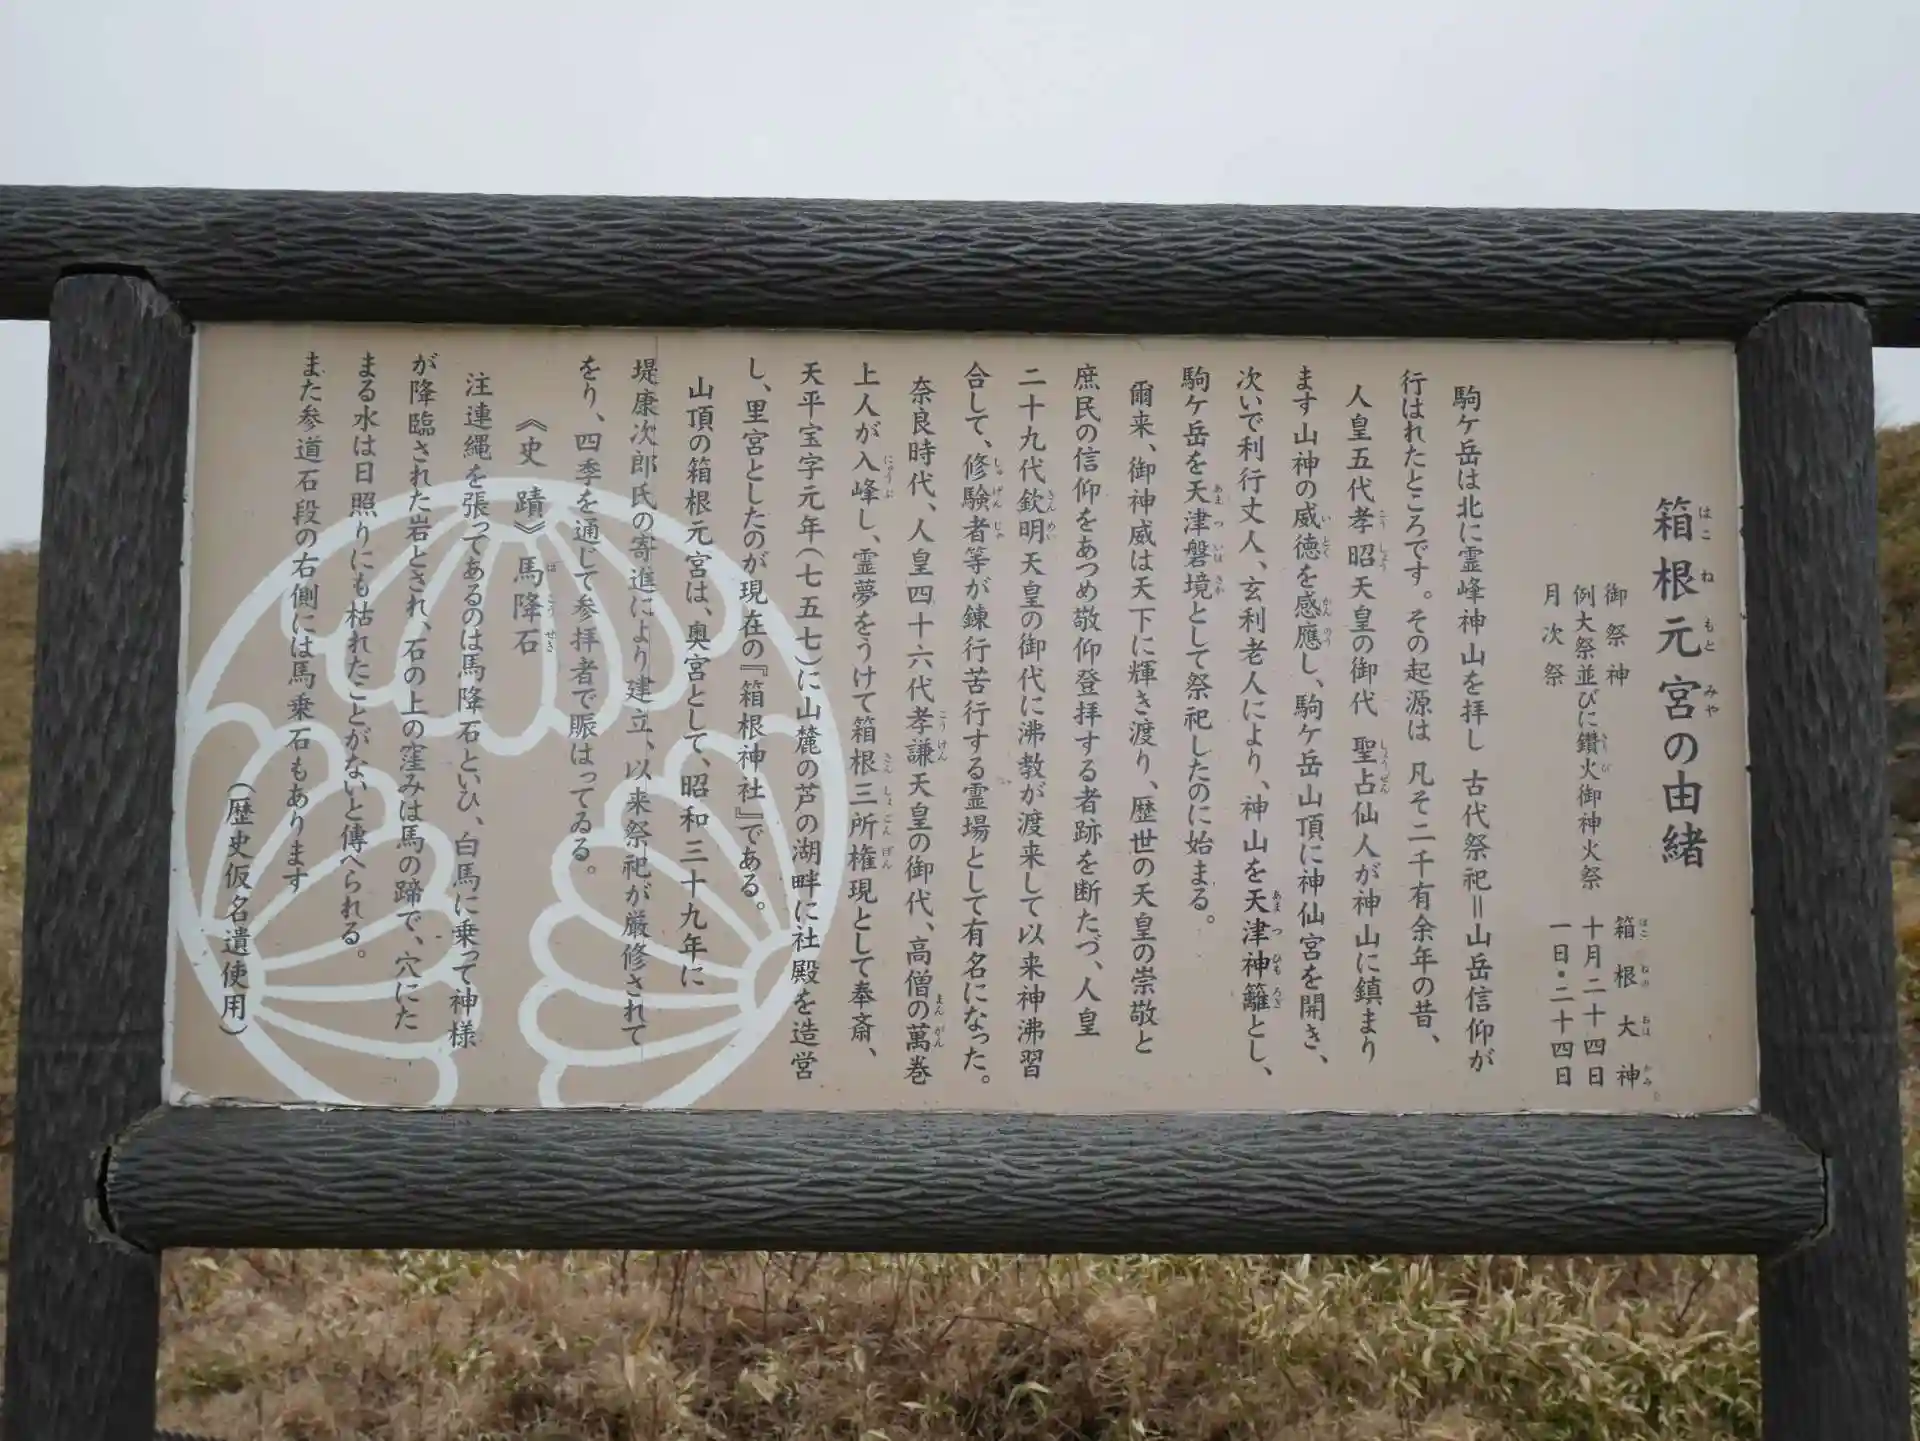 箱根元宮の由緒
御祭神　箱根大神
例大祭並びに鑽火御神火祭　十月二十四日
月次祭　一日・二十四日
駒ケ岳は北に霊峰神山を拝し 古代祭祀＝山岳信仰が
行はれたところです。その起源は 凡そ二千有余年の昔、
人皇五代孝昭天皇の御代 聖占仙人が神山に鎮まり
ます山神の威徳を感應し、駒ケ岳山頂に神仙宮を開き、
次いで利行丈人、玄利老人により、神山を天津神籬とし、
駒ケ岳を天津磐境として祭祀したのに始まる。
爾来、御神威は天下に輝き渡り、歴世の天皇の崇敬と
庶民の信仰をあつめ敬仰登拝する者跡を断たづ、人皇
二十九代欽明天皇の御代に沸教が渡来して以来神沸習
合して、修験者等が錬行苦行する霊場として有名になった。
奈良時代、人皇四十六代孝謙天皇の御代、高僧の萬巻
上人が入峰し、霊夢をうけて箱根三所権現として奉斎、
天平宝字元年（七五七）に山麓の芦の湖畔に社殿を造営
し、里宮としたのが現在の『箱根神社』である。
山頂の箱根元宮は、奥宮として、昭和三十九年に
堤康次郎氏の寄進により建立、以来祭祀が厳修されて
をり、四季を通じて参拝者で賑はってゐる。
《史蹟》馬降石
注連縄を張ってあるのは馬降石といひ、白馬に乗って神様
が降臨された岩とされ、石の上の窪みは馬の蹄で、穴にた
まる水は日照りにも枯れたことがないと傳へられる。
また参道石段の右側には馬乗石もあります
（歴史仮名遣使用）